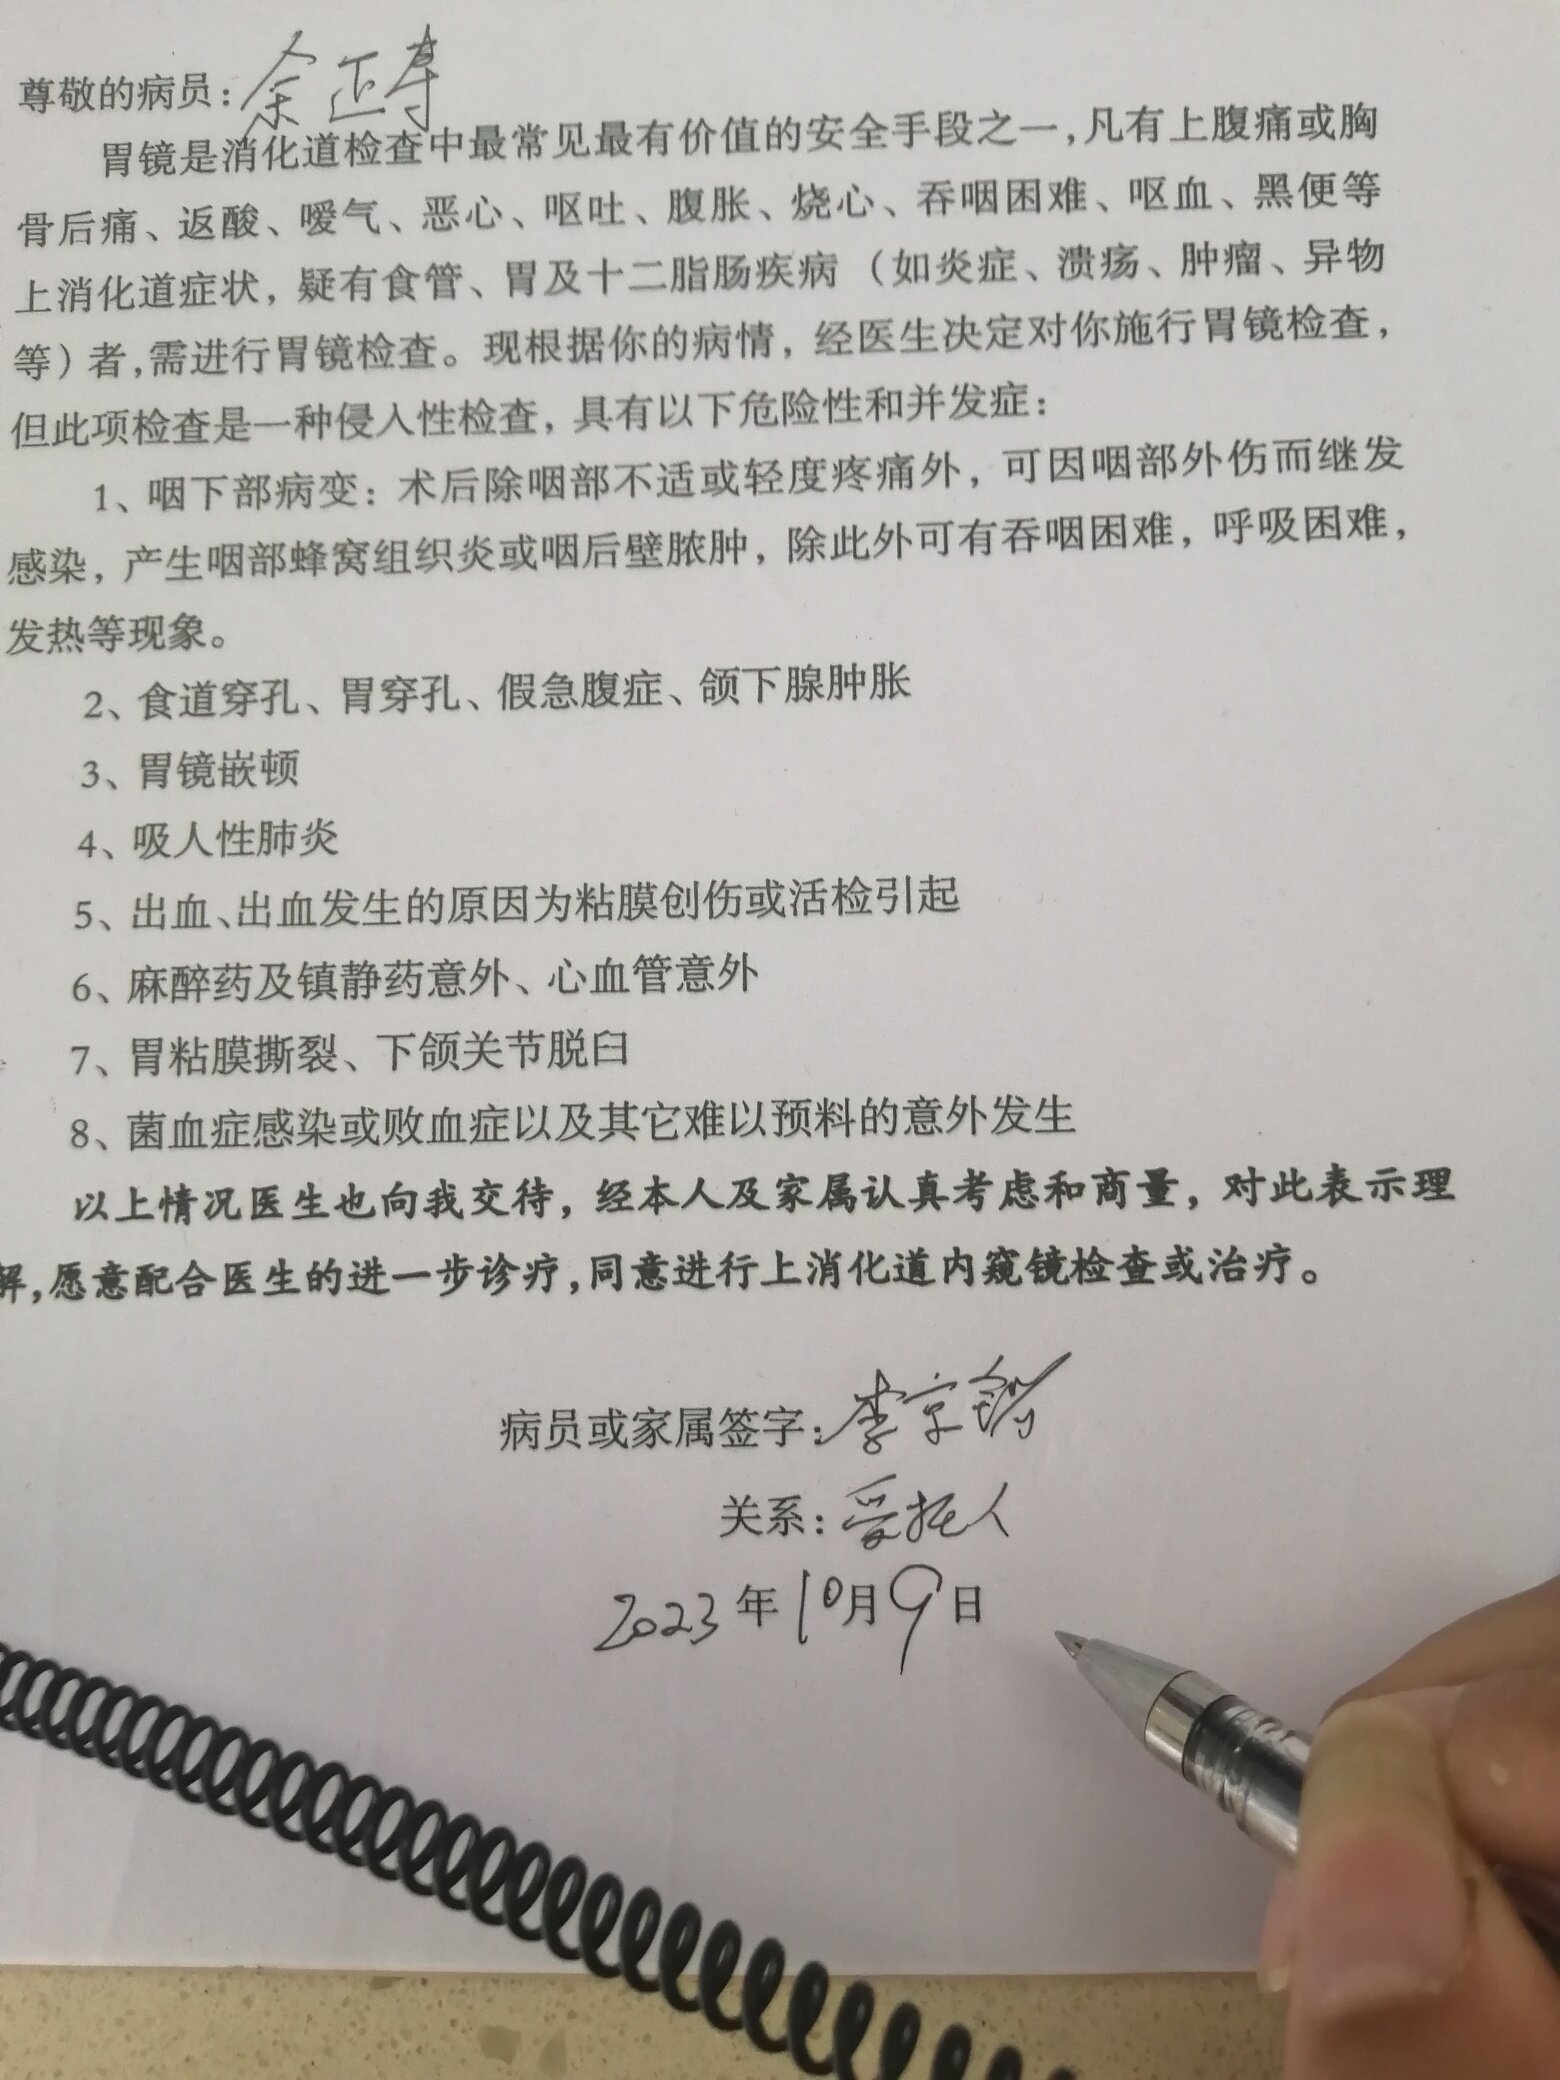 尊敬的病员：余正寿
胃镜是消化道检查中最常见最有价值的安全手段之一，凡有上腹痛或胸
骨后痛、返酸、嗳气、恶心、呕吐、腹胀、烧心、吞咽困难、呕血、黑便等
上消化道症状，疑有食管、胃及十二脂肠疾病（如炎症、溃疡、肿瘤、异物
等）者，需进行胃镜检查。现根据你的病情，经医生决定对你施行胃镜检查，
但此项检查是一种侵入性检查，具有以下危险性和并发症：
1、咽下部病变：术后除咽部不适或轻度疼痛外，可因咽部外伤而继发
感染，产生咽部蜂窝组织炎或咽后壁脓肿，除此外可有吞咽困难，呼吸困难，
发热等现象。
2、食道穿孔、胃穿孔、假急腹症、颌下腺肿胀
3、胃镜嵌顿
4、吸人性肺炎
5、出血、出血发生的原因为粘膜创伤或活检引起
6、麻醉药及镇静药意外、心血管意外
7、胃粘膜撕裂、下颌关节脱臼
8、菌血症感染或败血症以及其它难以预料的意外发生
以上情况医生也向我交待，经本人及家属认真考虑和商量，对此表示理
解，愿意配合医生的进一步诊疗，同意进行上消化道内窥镜检查或治疗。
病员或家属签字：李京
关系：受托人
2023年10月9日